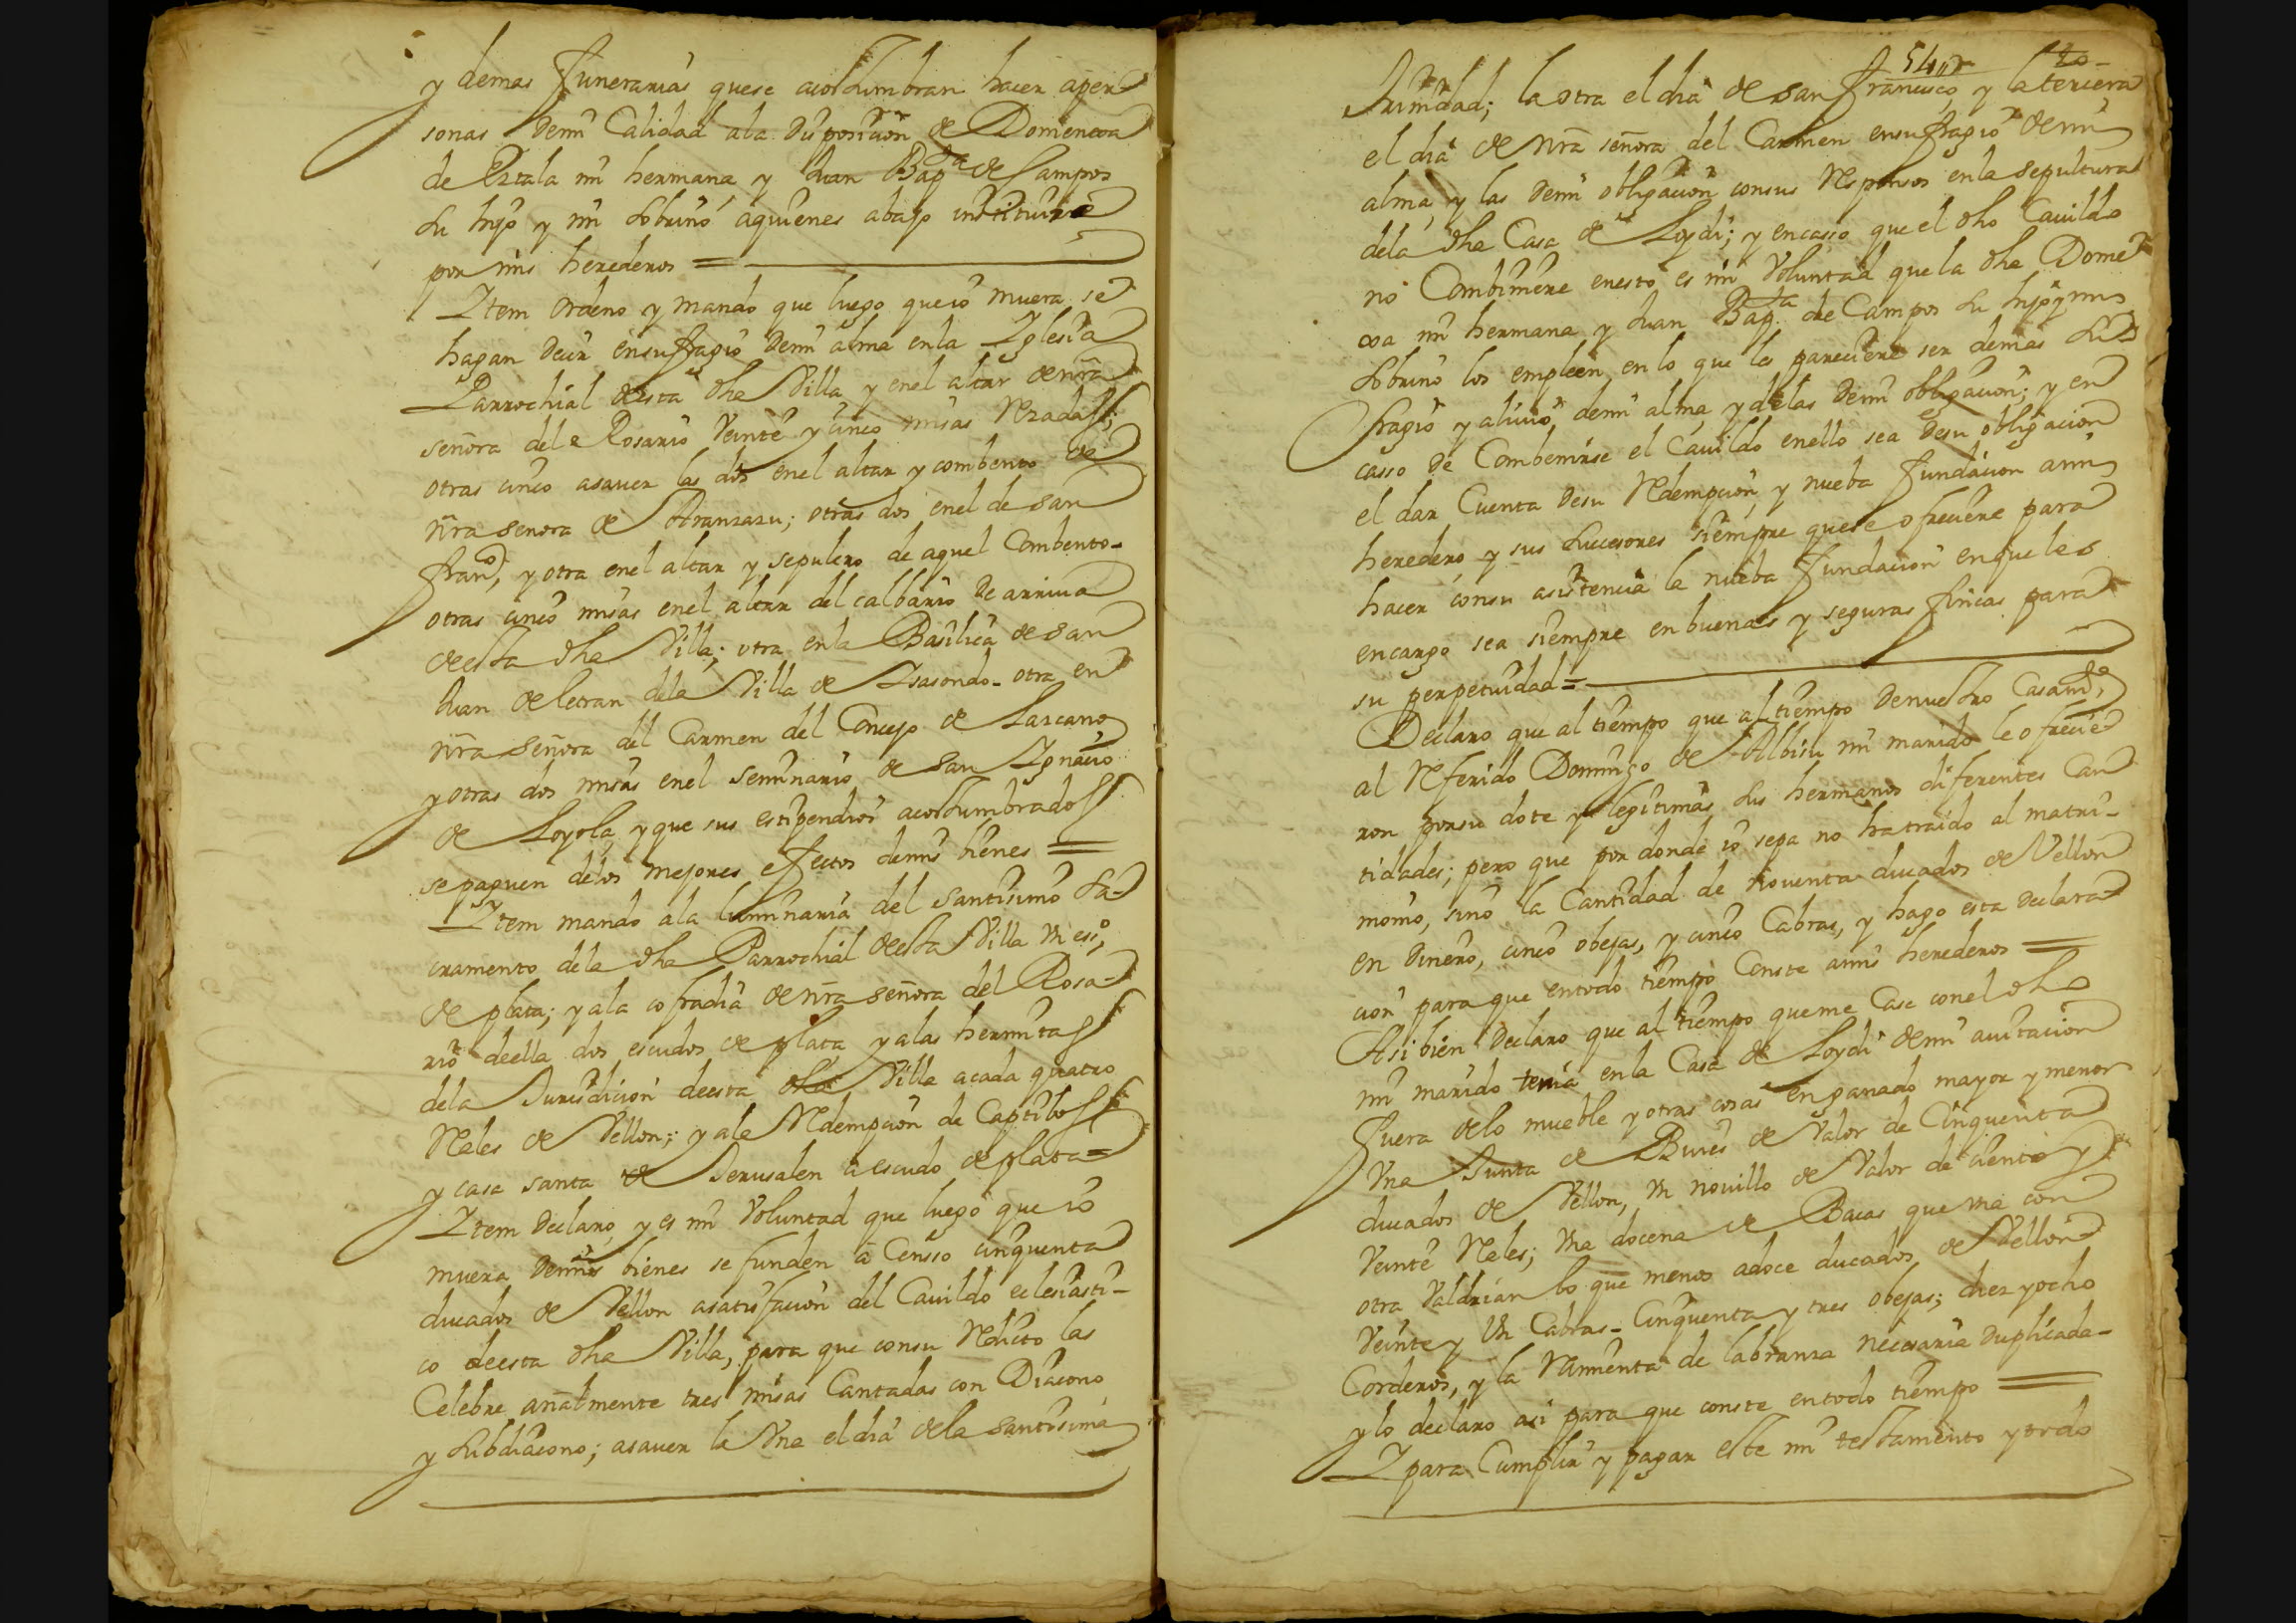 y demas funerarias quese acostumbran hacer aper
sonas demi Calidad ala disposicion de Domencoa
de Estala mi hermana, y Juan Bapta de Campos
su hijo y mi sobrino, aquienes abajo instituire
por mis herederos =
Item ordeno y mando que luego que io muera se
hagan decir ensufragio demi alma enla Iglesia
Parrochial desta dha Villa, y enel altar de nra
señora del Rosario Veinte y cinco misas Rezadas;
otras cinco asaver las dos enel altar y combento de
nra senora de Aranzazu; otras dos enel de san
franco, y otra enel altar y sepulcro de aquel Combento-
otras cinco misas enel altar del calbario de arriua
deesta dha Villa; otra enla Basilica de san
Juan de letran dela Villa de Isasondo- otra en
nra señora del Carmen del Concejo de Lazcano,
y otras dos misas enel seminario de san Ignacio
de Loyola, y que sus estipendios acostumbrados
se paguen delos mejores efectos demis bienes =
Item mando ala luminaria del santisimo Sa-
cramento dela dha Parrochial deesta Villa Vn esco
de plata; y ala cofradia de nra señora del Rosa-
rio deella dos escudos de plata y alas hermitas
dela Jurisdicion deesta dha Villa acada quatro
Reales de Vellon; y ala Redempcion de Captibos
y casa santa de Jerusalen a escudo de plata=
Item declaro, y es mi Voluntad que luego que io
muera demis bienes se funden a Censso cinquenta
ducados de Vellon asatisfacion del Cauildo eclesiasti-
co deesta dha Villa, para que consu Redito las
Celebre añalmente tres misas Cantadas con Diacono
y subdiacono; asauer la Vna el dia dela santisima
54 20-
Trinidad; la otra el dia de san francisco, y la tercera
el dia de nra señora del Carmen ensufragio demi
alma, y las demi obligacion consus Responsos enla sepultura
dela dha Casa de Loydi; y encasso que el dho Cauildo
no Combiniere enesto es mi Voluntad que la dha Domen
coa mi hermana y Juan Bapta de Campos su hijo y mi
sobrino los empleen en lo que les pareciere ser demas su
fragio y aliuio, demi alma, y delas demi obligacion; y en
casso de Combenirse el Cauildo enello sea desu obligacion
el dar Cuenta desu Redempcion, y nueba fundacion ami
heredero, y sus subcesores siempre quese ofreciere para
hacer consu asistencia la nueba fundacion enque les
encargo sea siempre en buenas y seguras fincas para
su perpetuidad=
Declaro que al tiempo que al tiempo denuestro Casamto
al Referido Domingo de Albisu mi marido le ofrecie
ron porsu dote y legitimas sus hermanos diferentes Can
tidades; pero que por donde io sepa no ha traido al matri-
monio, sino la Cantidad de nouenta ducados de Vellon
en dinero, cinco obejas, y cinco Cabras, y hago esta declara
cion para que entodo tiempo Conste amis herederos =
Asi bien declaro que al tiempo queme Case conel dho
mi marido tenia enla Casa de Loydi demi auitacion
fuera delo mueble y otras cosas en ganado mayor y menor
Vna Junta de Bueis de Valor de Cinquenta
ducados de Vellon, Vn nouillo de Valor de ciento y
Veinte Reales; Vna docena de Bacas que Vna con
otra Valdrian lo que menos adoce ducados de Vellon
Veinte y Vn Cabras- Cinquenta y tres obejas; diez y ocho
Corderos, y la Ramienta de labranza necesaria duplicada-
y lo declaro asi para que conste entodo tiempo =
I para Cumplir y pagar este mi testamento y todo